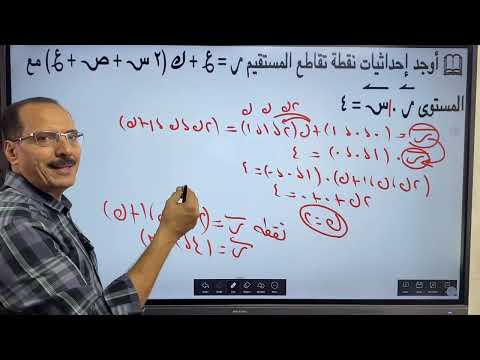 أوجد إحداثيات نقطة تقاطع المستقيم ر = ع + ك (٢ س + ص + ع) مع
المستوى ر . س = ٤
ر = (٠،٠،١) + ك(٢،١،١) = (٢ك،ك،ك+١)
ر . (١،٠،٠) = ٤
(٢ك،ك،ك+١) . (١،٠،٠) = ٤
٢ك + ٠ + ٠ = ٤
ك = ٢
نقطة ر = ك+١)
ر = (٤،